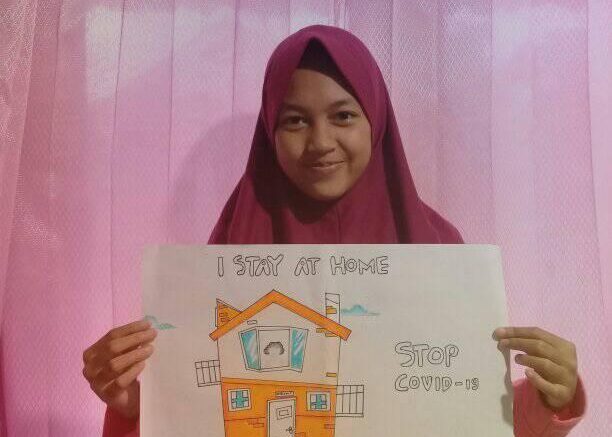 I STAY AT HOME
STOP
COVID-19